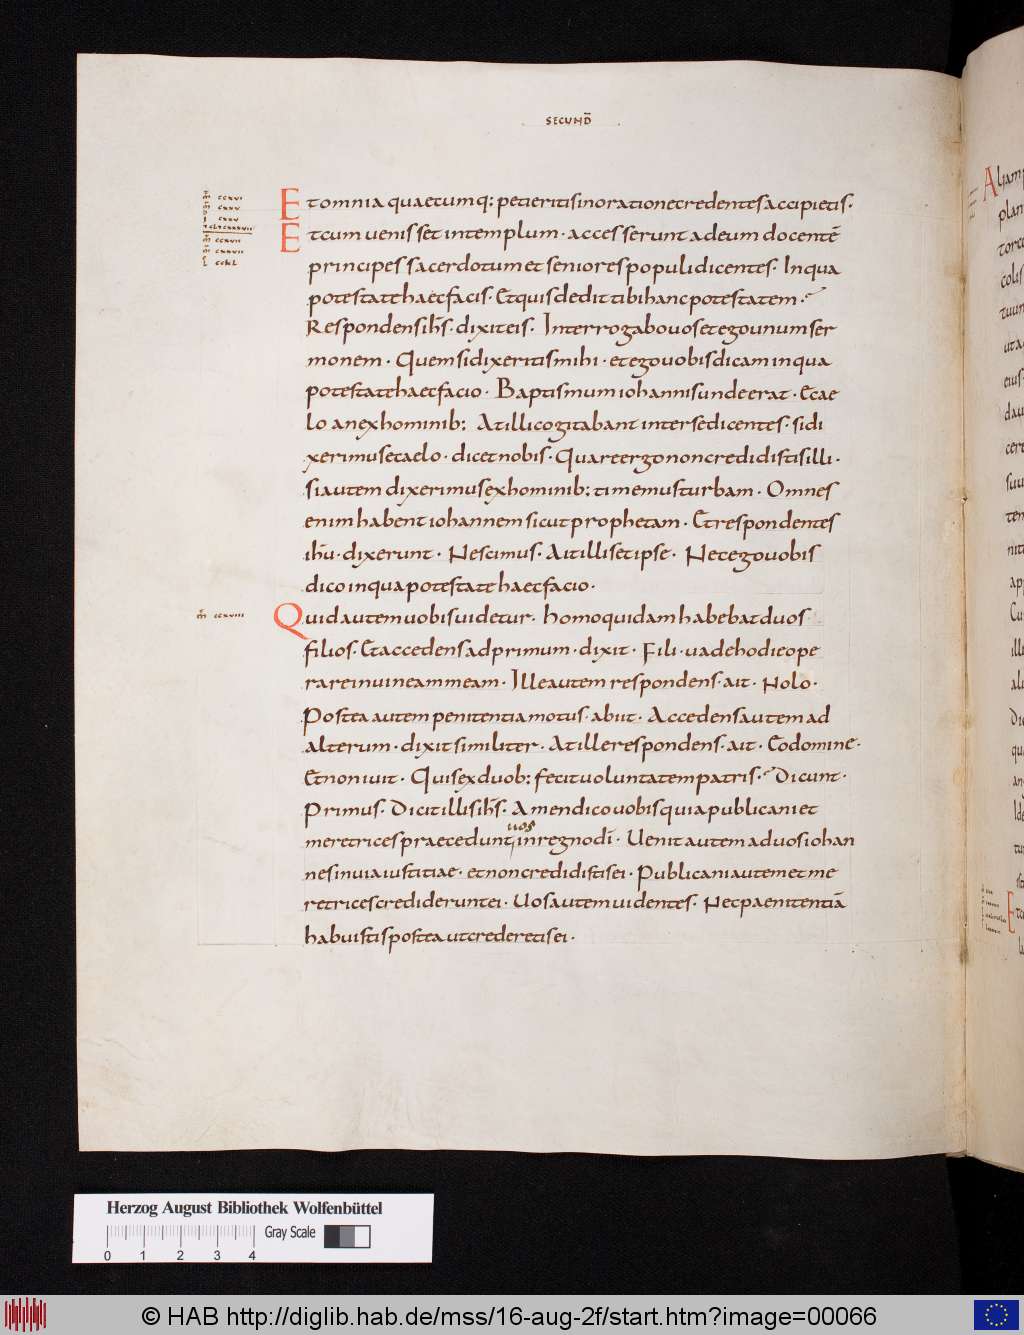 SECUND̄
Et omnia quaecumq; petieritis in oratione credentes accipietis·
Et cum uenisset in templum· accesserunt ad eum docentē
principes sacerdotum et seniores populi dicentes· In qua
potestate haec facis· Et quis dedit tibi hanc potestatem·
Respondens ih̄s· dixit eis· Interrogabo uos et ego unum ser
monem· Quem si dixeritis mihi· et ego uobis dicam in qua
potestate haec facio· Baptismum iohannis unde erat· E cae
lo an ex hominib; At illi cogitabant inter se dicentes· si di
xerimus e caelo· dicet nobis· Quare ergo non credidistis illi·
si autem dixerimus ex hominib; timemus turbam· Omnes
enim habent iohannem sicut prophetam· Et respondentes
ih̄u· dixerunt· Nescimus· Ait illis et ipse· Nec ego uobis
dico in qua potestate haec facio·
m̄ ccxviii
Quid autem uobis uidetur· homo quidam habebat duos
filios· Et accedens ad primum· dixit· Fili· uade hodie ope
rare in uineam meam· Ille autem respondens· ait· Nolo·
Postea autem penitentia motus· abiit· Accedens autem ad
alterum· dixit similiter· At ille respondens· ait· Eo domine·
Et non iuit· Quis ex duob; fecit uoluntatem patris· Dicunt·
Primus· Dicit illis ih̄s· Amen dico uobis quia publicani et
uos
meretrices praecedunt in regno dī· Uenit autem ad uos iohan
nes in uia iustitiae· et non credidistis ei· Publicani autem et me
retrices crediderunt ei· Uos autem uidentes· Nec paenitentiā
habuistis postea ut crederetis ei·
Herzog August Bibliothek Wolfenbüttel
Gray Scale
0 1 2 3 4
© HAB http://diglib.hab.de/mss/16-aug-2f/start.htm?image=00066